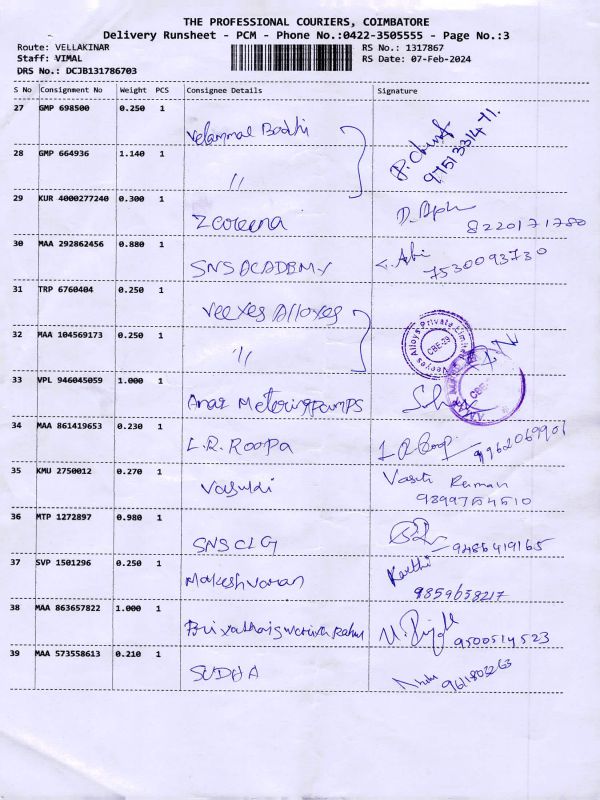 THE PROFESSIONAL COURIERS, COIMBATORE
Delivery Runsheet - PCM - Phone No.:0422-3505555 - Page No.:3
Route: VELLAKINAR RS No.: 1317867
Staff: VIMAL RS Date: 07-Feb-2024
DRS No.: DCJB131786703
S No Consignment No Weight PCS Consignee Details Signature
27 GMP 698500 0.250 1
Velammal Bodhi
28 GMP 664936 1.140 1
〃
29 KUR 4000277240 0.300 1
Zareena 8220171780
30 MAA 292862456 0.880 1
SNS ACADEMY 7530093730
31 TRP 6760404 0.250 1
Veeyes Alloyes
32 MAA 104569173 0.250 1
〃
Veeyes Alloys Private Limited
CBE-29
33 VPL 946045059 1.000 1
Metering Pumps
34 MAA 861419653 0.230 1
L.R. ROOPA
35 KMU 2750012 0.270 1
36 MTP 1272897 0.980 1
SNS CLG 9486419165
37 SVP 1501296 0.250 1
Makeshvaran Karthi
9859658217
38 MAA 863657822 1.000 1
9500514523
39 MAA 573558613 0.210 1
SUDHA